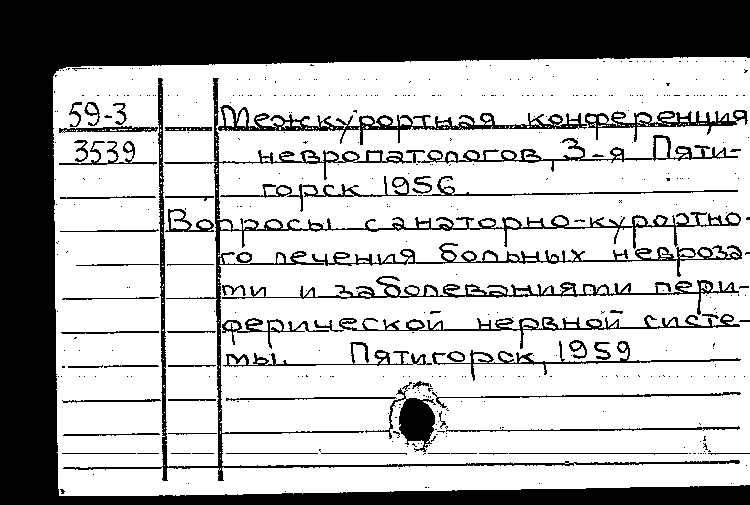 59-3 Межкурортная конференция
3539 невропатологов, 3-я Пяти-
горск 1956.
Вопросы санаторно-курортно-
го лечения больных невроза-
ми и заболеваниями пери-
ферической нервной систе-
мы. Пятигорск, 1959